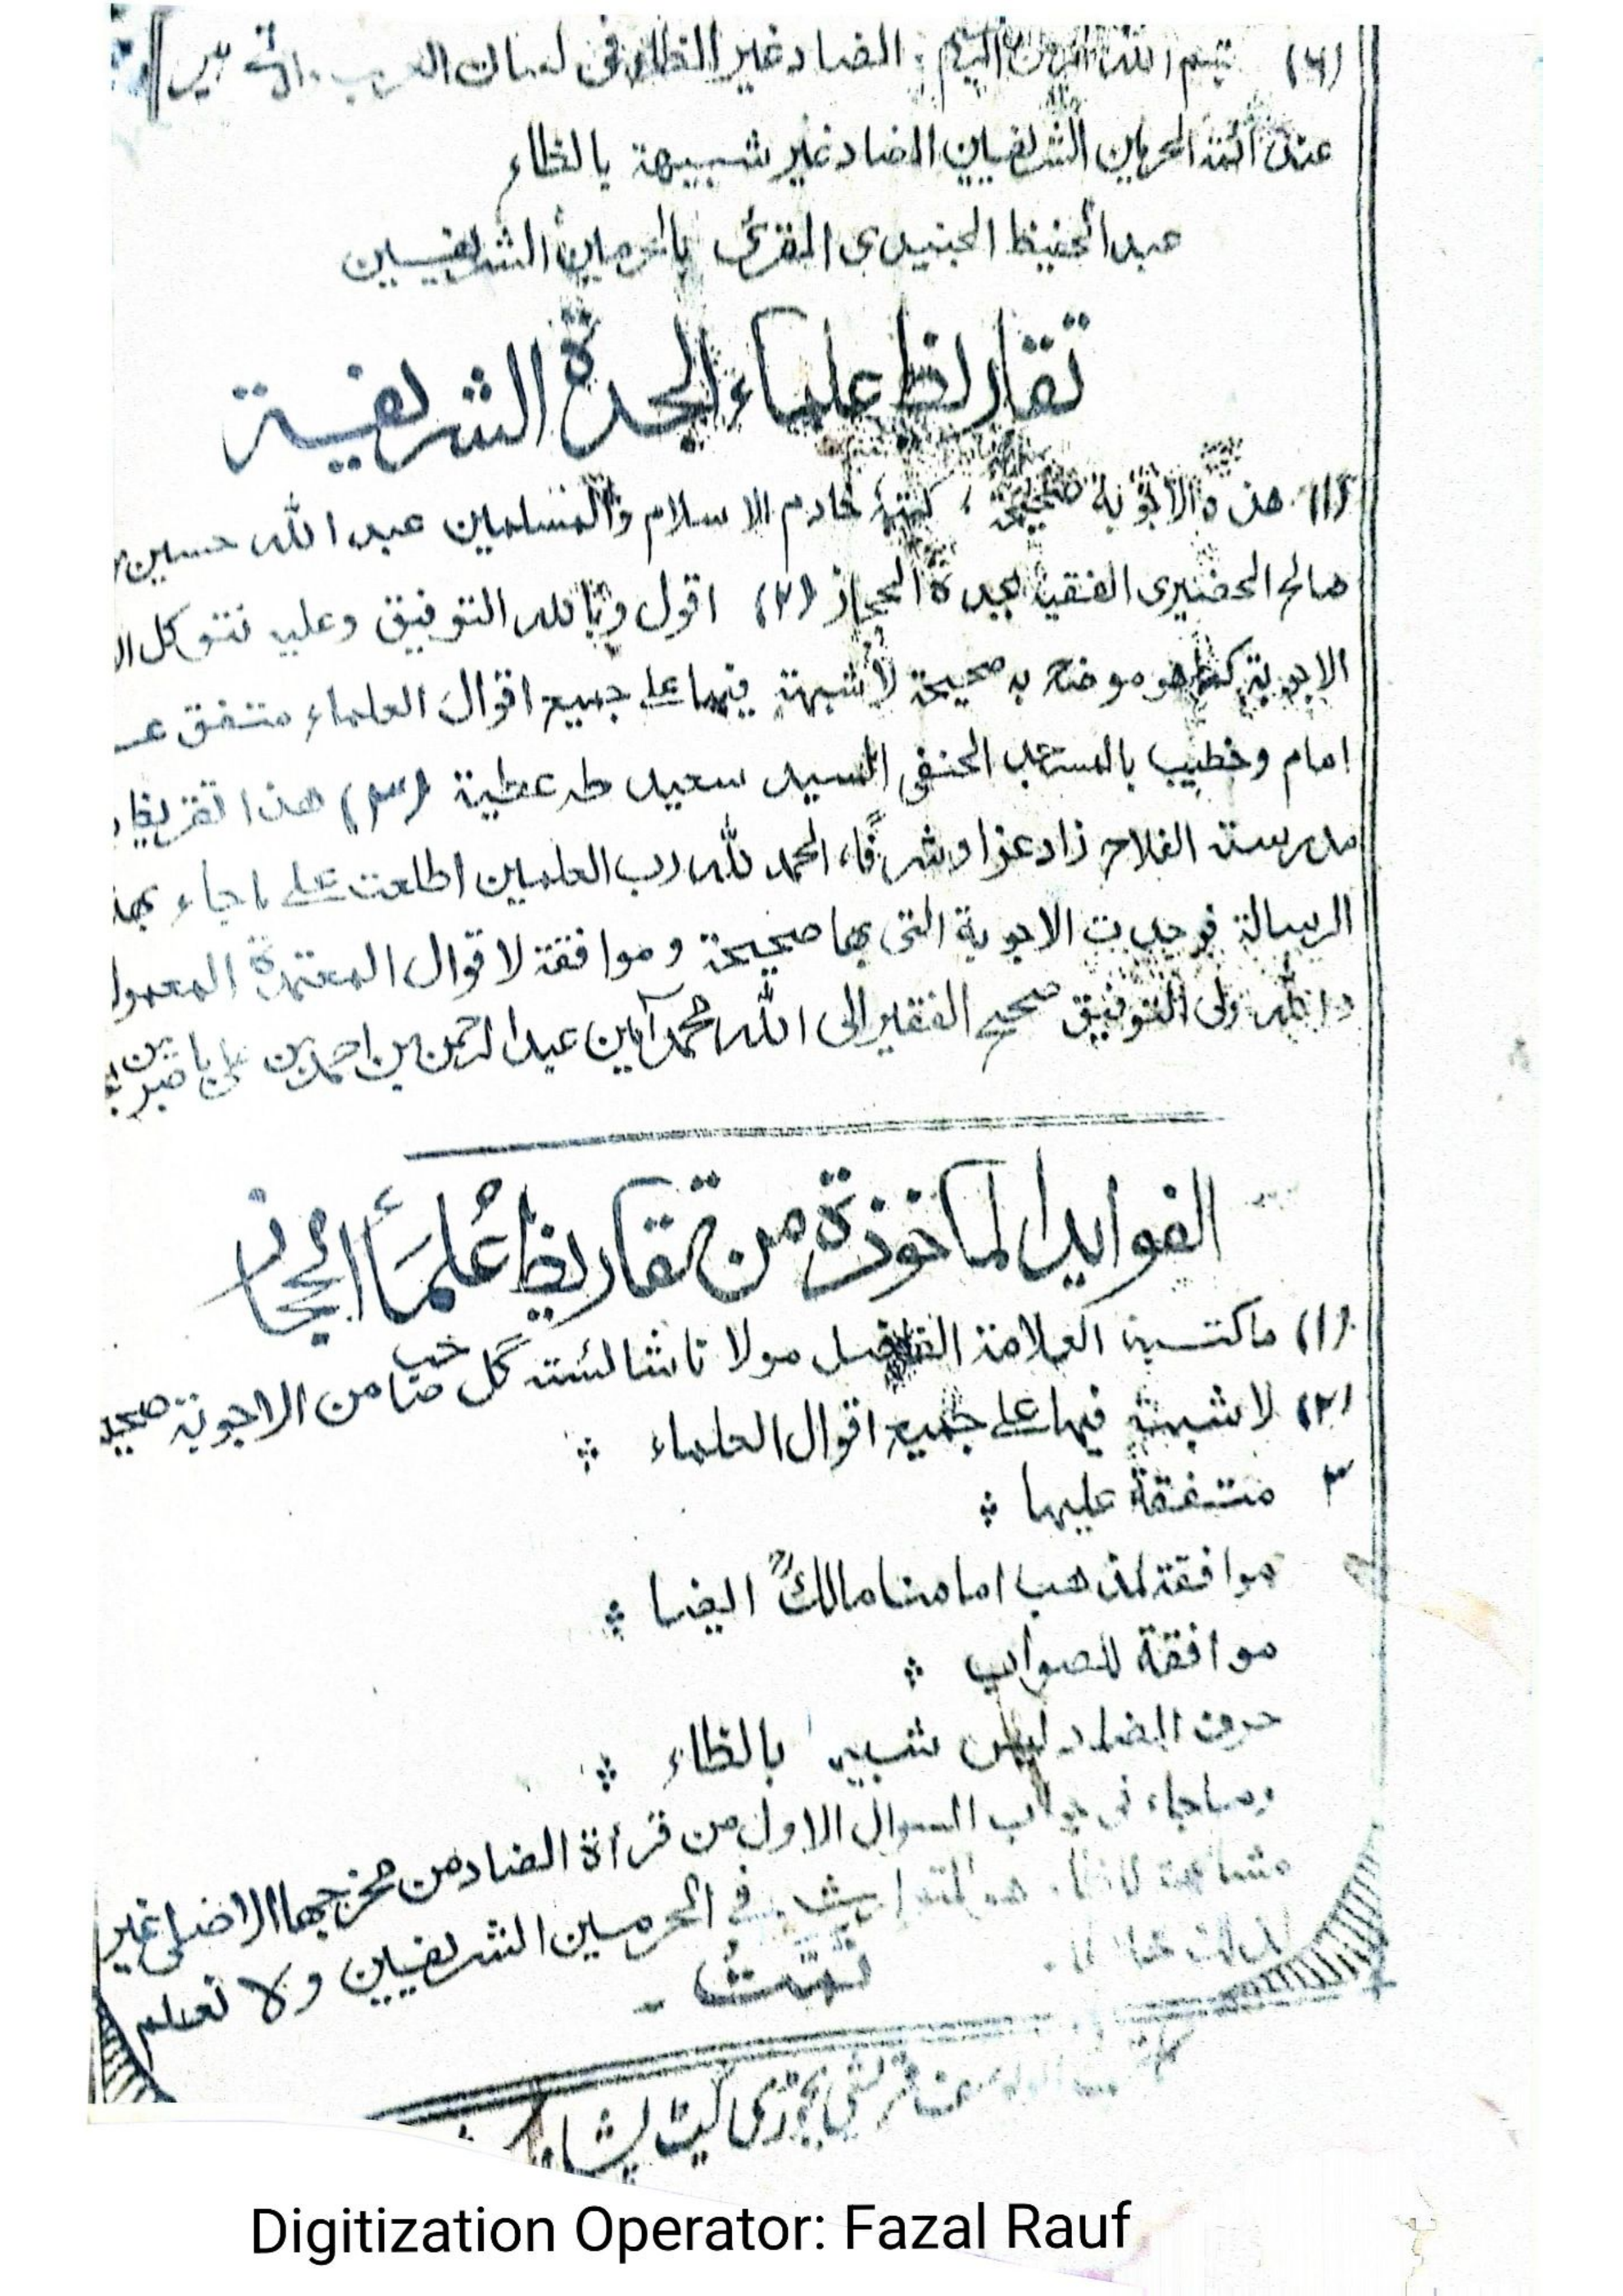 (٦) الضاد غير الظاء فى لسان العرب
عند ائمة الحرمين الشريفين الضاد غير شبيهة بالظاء
عبد الحفيظ الجنيدى المقرى بالحرمين الشريفين
تقاريظ علماء الجدة الشريفة
(١) هذه الاجوبة صحيحة، كتبه خادم الاسلام والمسلمين عبد الله حسين
صالح الحضيرى الفقيه بجدة الحجاز (٢) اقول وبالله التوفيق وعليه نتوكل
الاجوبة كما هو موضح به صحيحة لا شبهة فيها على جميع اقوال العلماء متفق
امام وخطيب بالمسجد الحنفى السيد سعيد طه عطية (٣) هذا تقريظ
مدرسة الفلاح زاد عزا وشرفًا، الحمد لله رب العلمين اطلعت على ما جاء بهذ
الرسالة فوجدت الاجوبة التى بها صحيحة وموافقة لاقوال المعتمدة
والله ولى التوفيق صحيح الفقير الى الله محمد امين عبد الرحمن بن احمد بن على
الفوايد الماخوذة من تقاريظ عُلمَاءِ الحجاز
(١) ما كتبه العلامة الفاضل مولانا شائسته گل صاحب من الاجوبة
(٢) لا شبهة فيها على جميع اقوال العلماء
٣ متفقة عليها
موافقة لمذهب امامنا مالكؒ ايضا
موافقة للصواب
حرف الضاد ليس شبيه بالظاء
وما جاء فى جواب السوال الاول من قرأة الضاد من مخرجها الاصلى غير
مشابهة للظاء هو المتوارث فى الحرمين الشريفين ولا نعلم
تمّت
پشاور
Digitization Operator: Fazal Rauf